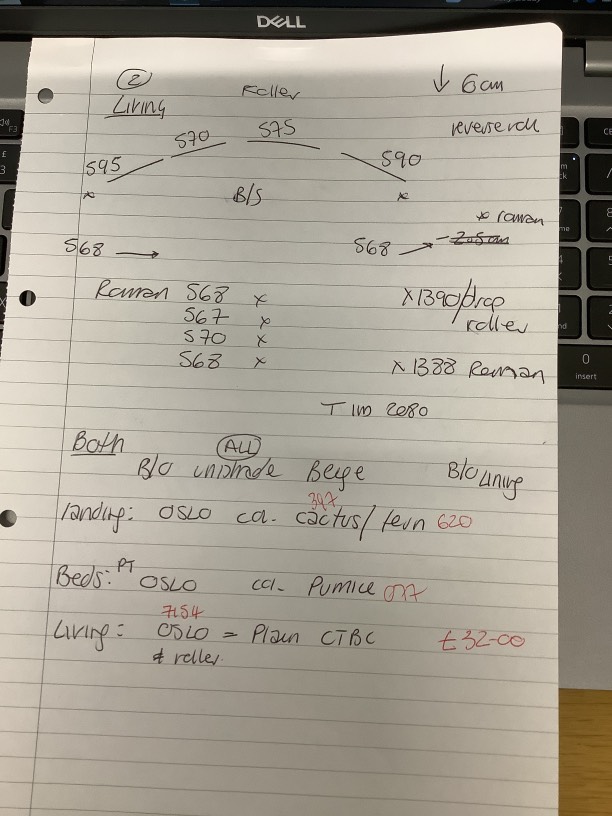 DELL
② Roller ↓ 6cm
Living
570 575 reverse roll
595 590
x B/S x
* roman
568 → 568 → -2.5cm
Roman 568 x x1390/drop
567 x roller
570 x
568 x x1388 Roman
TIM 2080
Both ALL
B/O unishade Beige B/O Lining
397
Landing: OSLO ca. cactus/fern 620
Beds: PT OSLO ca. Pumice 077
7154
Living: OSLO = Plain CTBC £32-00
& roller.
0
insert